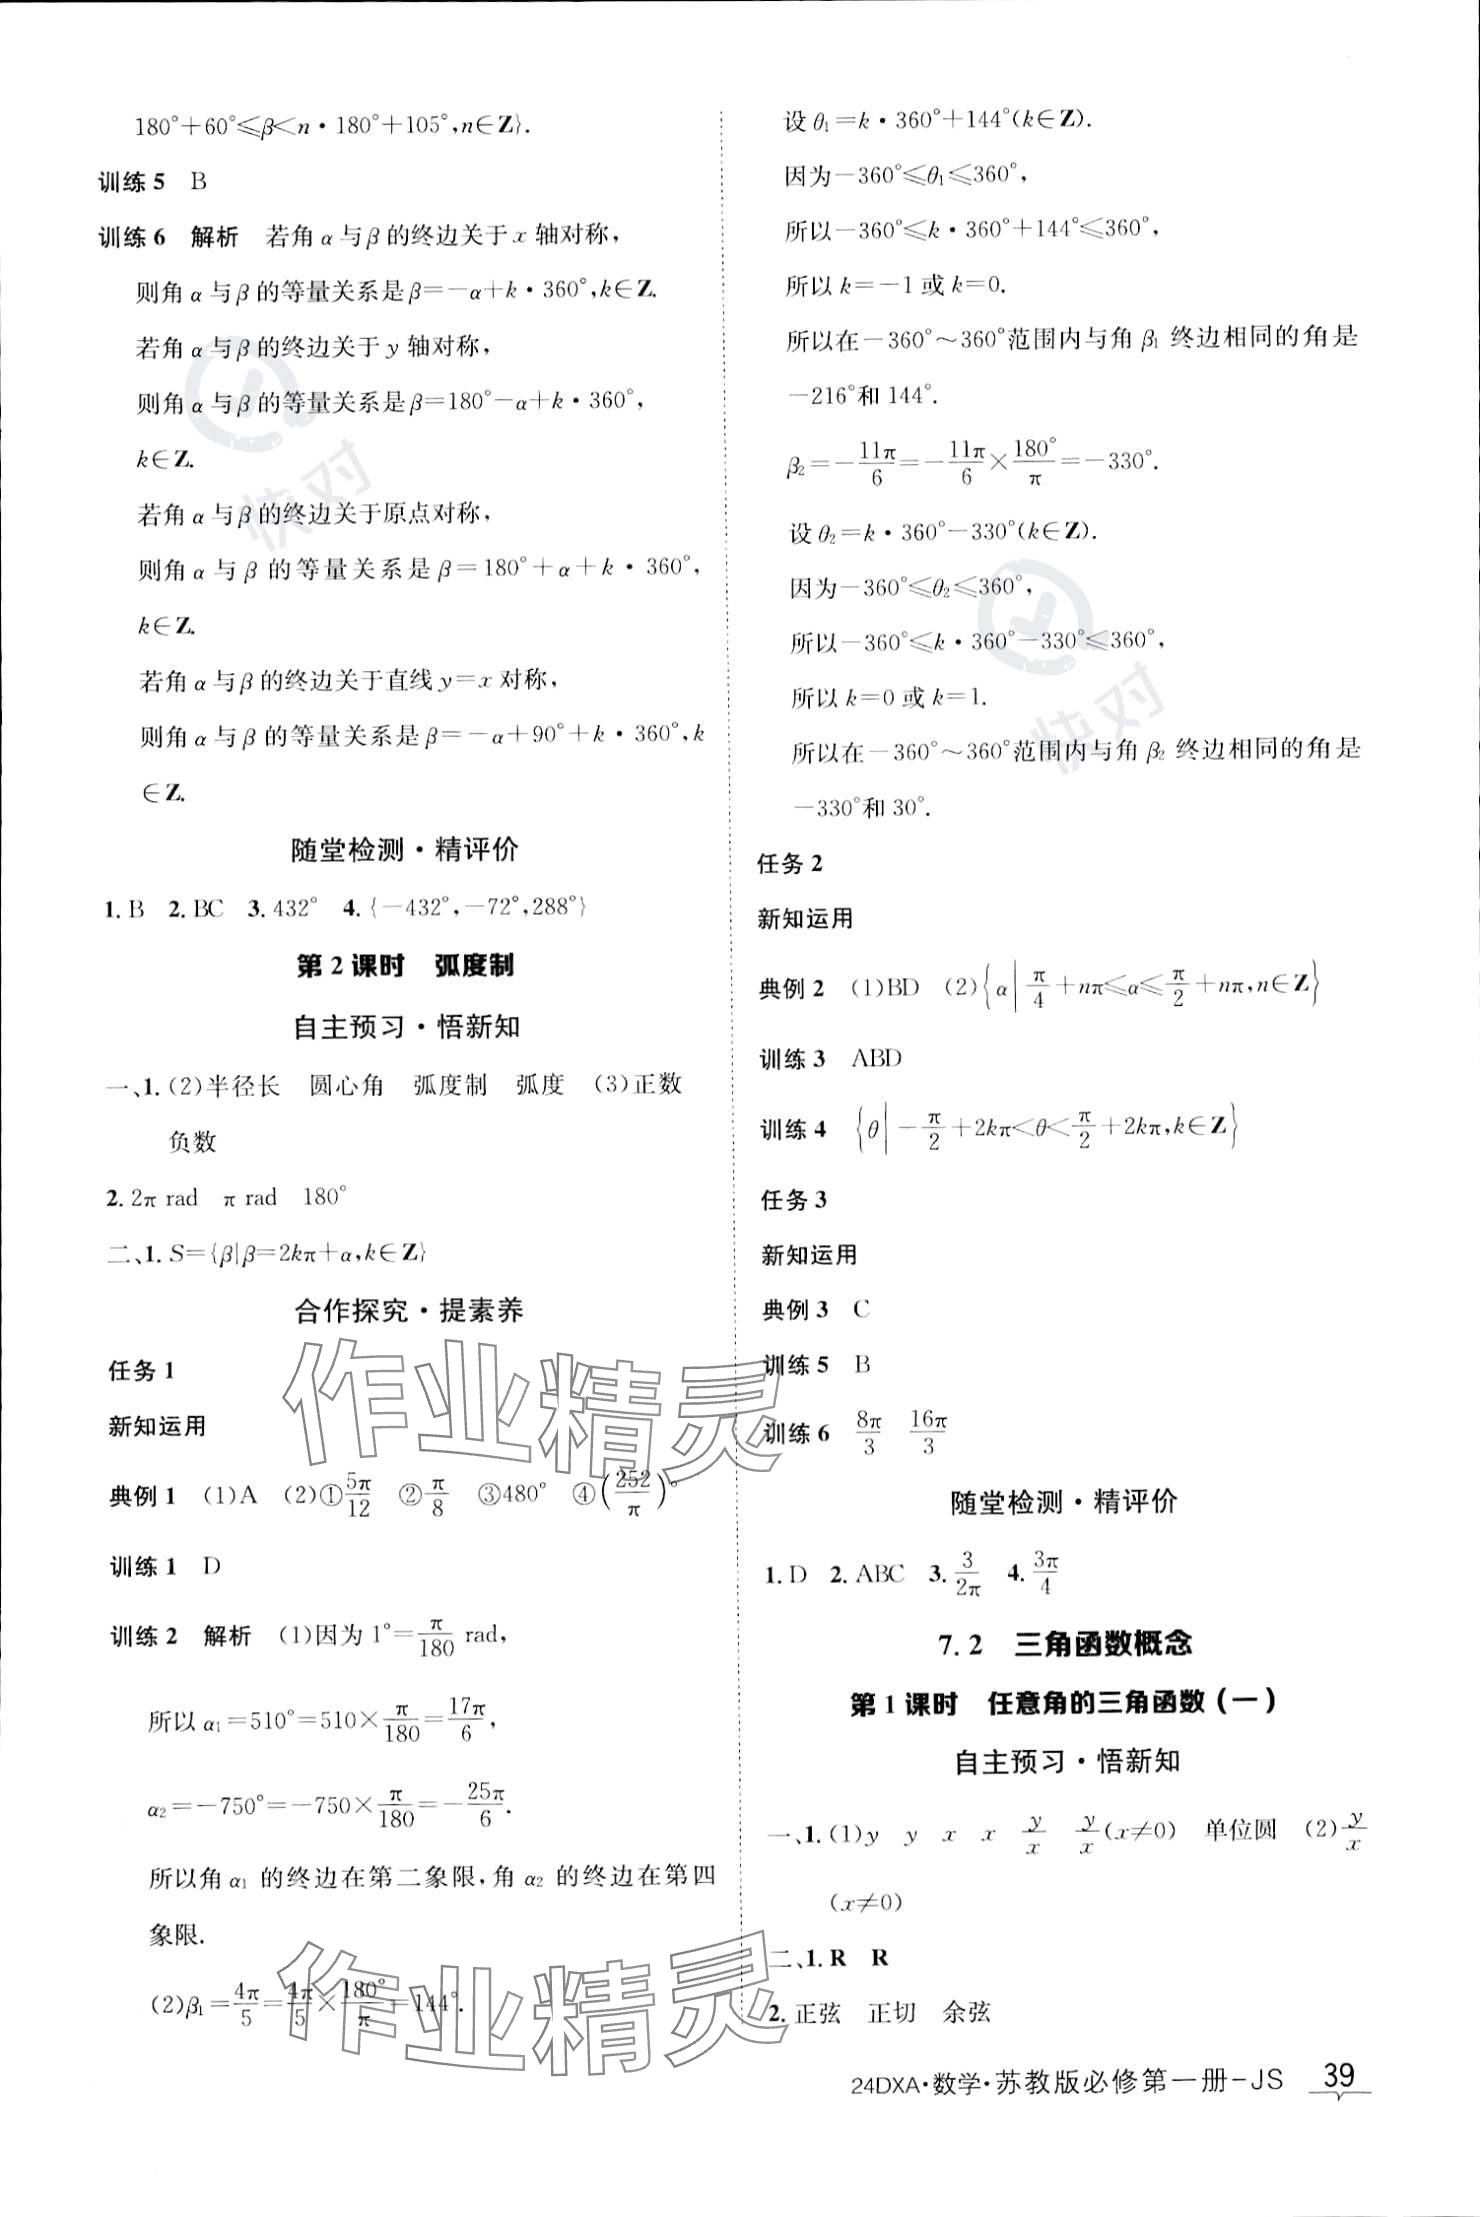 180°+60°≤β<n·180°+105°,n∈Z}.
训练5 B
训练6 解析 若角α与β的终边关于x轴对称,
则角α与β的等量关系是β=-α+k·360°,k∈Z.
若角α与β的终边关于y轴对称,
则角α与β的等量关系是β=180°-α+k·360°,
k∈Z.
若角α与β的终边关于原点对称,
则角α与β的等量关系是β=180°+α+k·360°,
k∈Z.
若角α与β的终边关于直线y=x对称,
则角α与β的等量关系是β=-α+90°+k·360°,k
∈Z.
随堂检测·精评价
1.B 2.BC 3.432° 4.{-432°,-72°,288°}
第2课时 弧度制
自主预习·悟新知
一、1.(2)半径长 圆心角 弧度制 弧度 (3)正数
负数
2.2π rad π rad 180°
二、1.S={β|β=2kπ+α,k∈Z}
合作探究·提素养
任务1
新知运用
典例1 (1)A (2)①5π/12 ②π/8 ③480° ④(252/π)°
训练1 D
训练2 解析 (1)因为1°=π/180 rad,
所以α₁=510°=510×π/180=17π/6,
α₂=-750°=-750×π/180=-25π/6.
所以角α₁的终边在第二象限,角α₂的终边在第四
象限.
(2)β₁=4π/5=4π/5×180°/π=144°.
设θ₁=k·360°+144°(k∈Z).
因为-360°≤θ₁≤360°,
所以-360°≤k·360°+144°≤360°,
所以k=-1或k=0.
所以在-360°~360°范围内与角β₁终边相同的角是
-216°和144°.
β₂=-11π/6=-11π/6×180°/π=-330°.
设θ₂=k·360°-330°(k∈Z).
因为-360°≤θ₂≤360°,
所以-360°≤k·360°-330°≤360°,
所以k=0或k=1.
所以在-360°~360°范围内与角β₂终边相同的角是
-330°和30°.
任务2
新知运用
典例2 (1)BD (2){α|π/4+nπ≤α≤π/2+nπ,n∈Z}
训练3 ABD
训练4 {θ|-π/2+2kπ<θ<π/2+2kπ,k∈Z}
任务3
新知运用
典例3 C
训练5 B
训练6 8π/3 16π/3
随堂检测·精评价
1.D 2.ABC 3.3/2π 4.3π/4
7.2 三角函数概念
第1课时 任意角的三角函数(一)
自主预习·悟新知
一、1.(1)y y x x y/x y/x(x≠0) 单位圆 (2)y/x
(x≠0)
二、1.R R
2.正弦 正切 余弦
24DXA·数学·苏教版必修第一册-JS 39
快对
快对
作业精灵
作业精灵